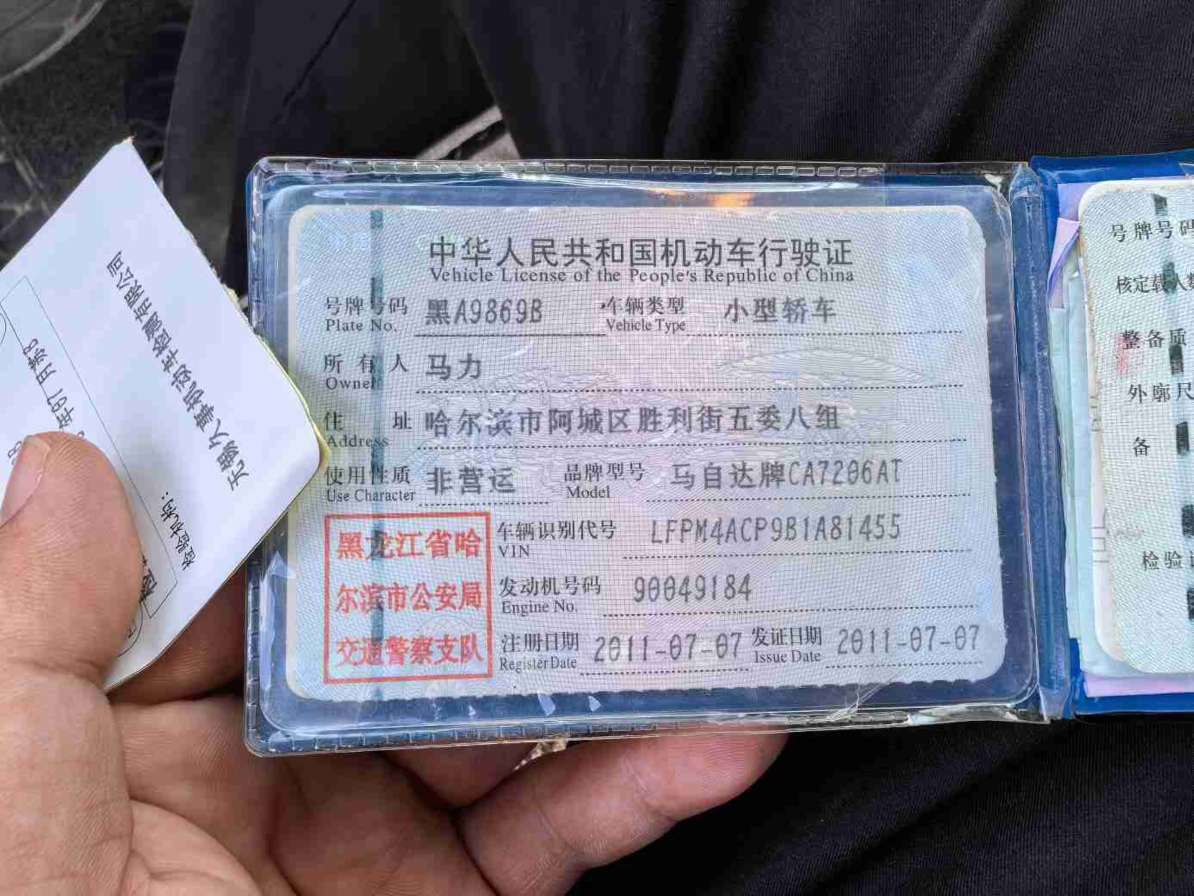 中华人民共和国机动车行驶证
Vehicle License of the People's Republic of China
号牌号码 黑A9869B 车辆类型 小型轿车
Plate No. Vehicle Type
所有人 马力
Owner
住址 哈尔滨市阿城区胜利街五委八组
Address
使用性质 非营运 品牌型号 马自达牌CA7206AT
Use Character Model
黑龙江省哈
尔滨市公安局
交通警察支队
车辆识别代号 LFPM4ACP9B1A81455
VIN
发动机号码 90049184
Engine No.
注册日期 2011-07-07 发证日期 2011-07-07
Register Date Issue Date
无锡久事机动车检测有限公司
检验机构:
号牌号码
核定载人数
整备质
外廓尺
备
检验